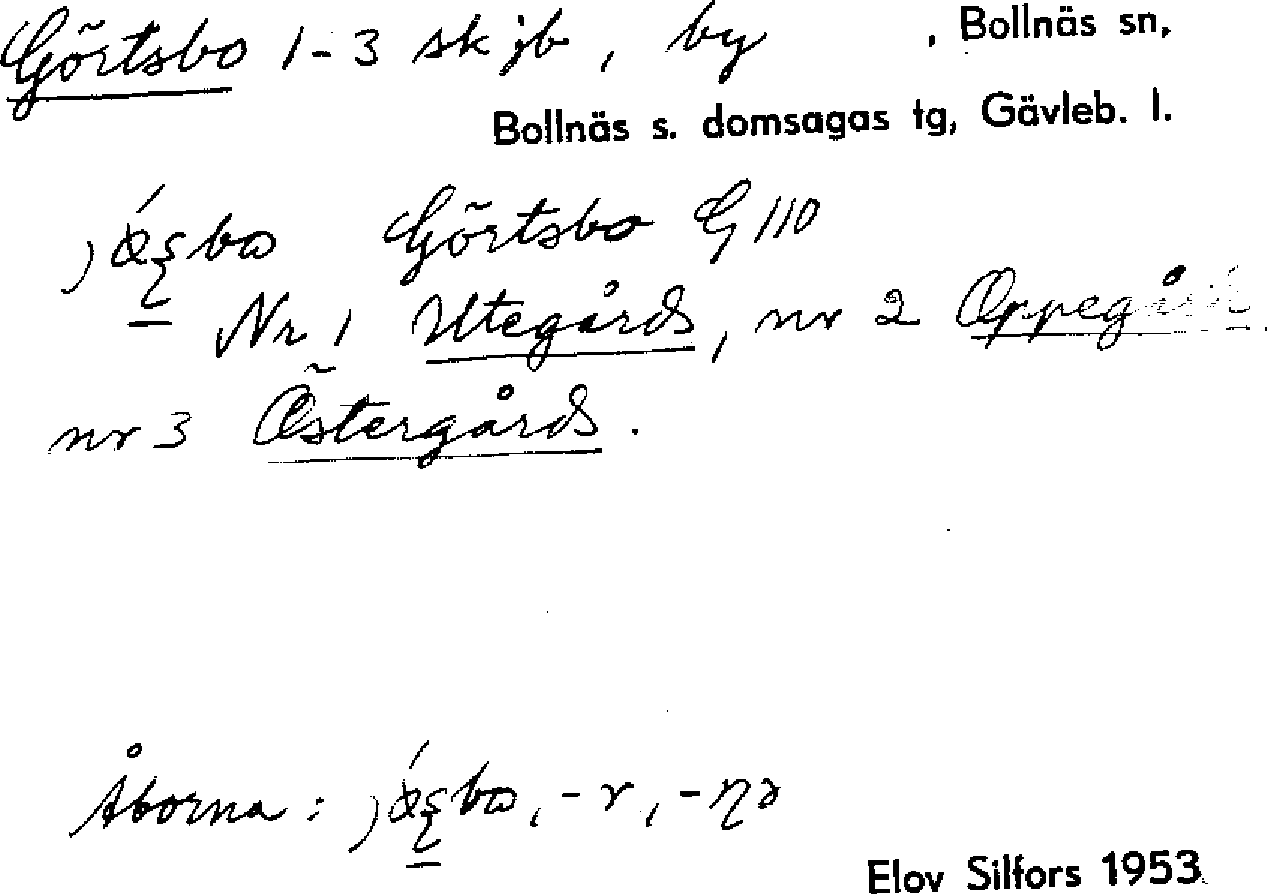 Görtsbo 1-3 sk jb, by , Bollnäs sn,
Bollnäs s. domsagas tg, Gävleb. l.
Görtsbo G 110
Nr 1 Utegårds, nr 2 Oppegårds
nr 3 Östergårds.
Åborna:
Elov Silfors 1953